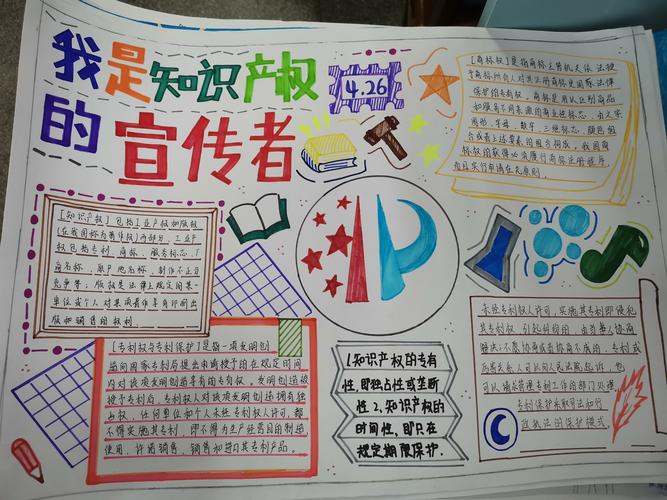 我是知识产权
的宣传者
4.26
【商标权】是指商标主管机关依法授
予商标所有人对其注册商标受国家法律
保护的专有权。商标是用以区别商品
和服务不同来源的商业性标志，由文字
图形、字母、数字、三维标志、颜色组
合或者上述要素的组合构成。我国商
标权的获得必须履行商标注册程序，
而且实行申请在先原则。
【知识产权】包括工业产权和版权
(在我国称为著作权)两部分，工业产
权包括专利、商标、服务标志、厂
商名称、原产地名称、制作不正当
竞争等；版权是法律上规定的某一
单位或个人对某项著作享有印刷出
版和销售的权利
【专利权与专利保护】是指一项发明创
造向国家专利局提出申请授予的在规定时间
内对该项发明创造享有的专有权，发明创造被
授予专利后，专利权人对该项发明创造拥有独
占权，任何单位和个人未经专利权人许可，都
不得实施其专利，即不得为生产经营目的制造
使用、许诺销售、销售和进口其专利产品。
1.知识产权的专有
性，即独占性或垄断
性 2.知识产权的
时间性，即只在
规定期限保护.
未经专利权人许可，实施其专利即侵犯
其专利权，引起纠纷的，由当事人协商
解决；不愿协商或者协商不成的，专利权或
利害关系人可以向人民法院起诉，也
可以请求管理专利工作的部门处理，
专利保护采取司法和行
政执法的保护模式。